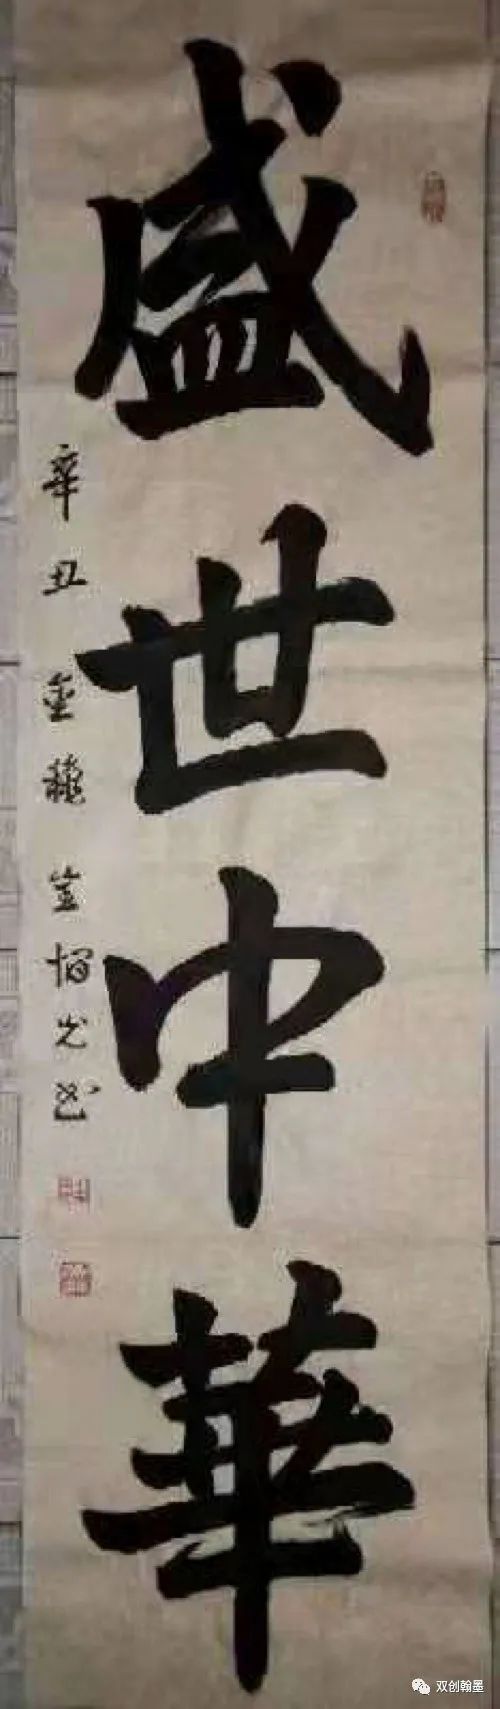 盛世中華
辛丑金秋
双创翰墨